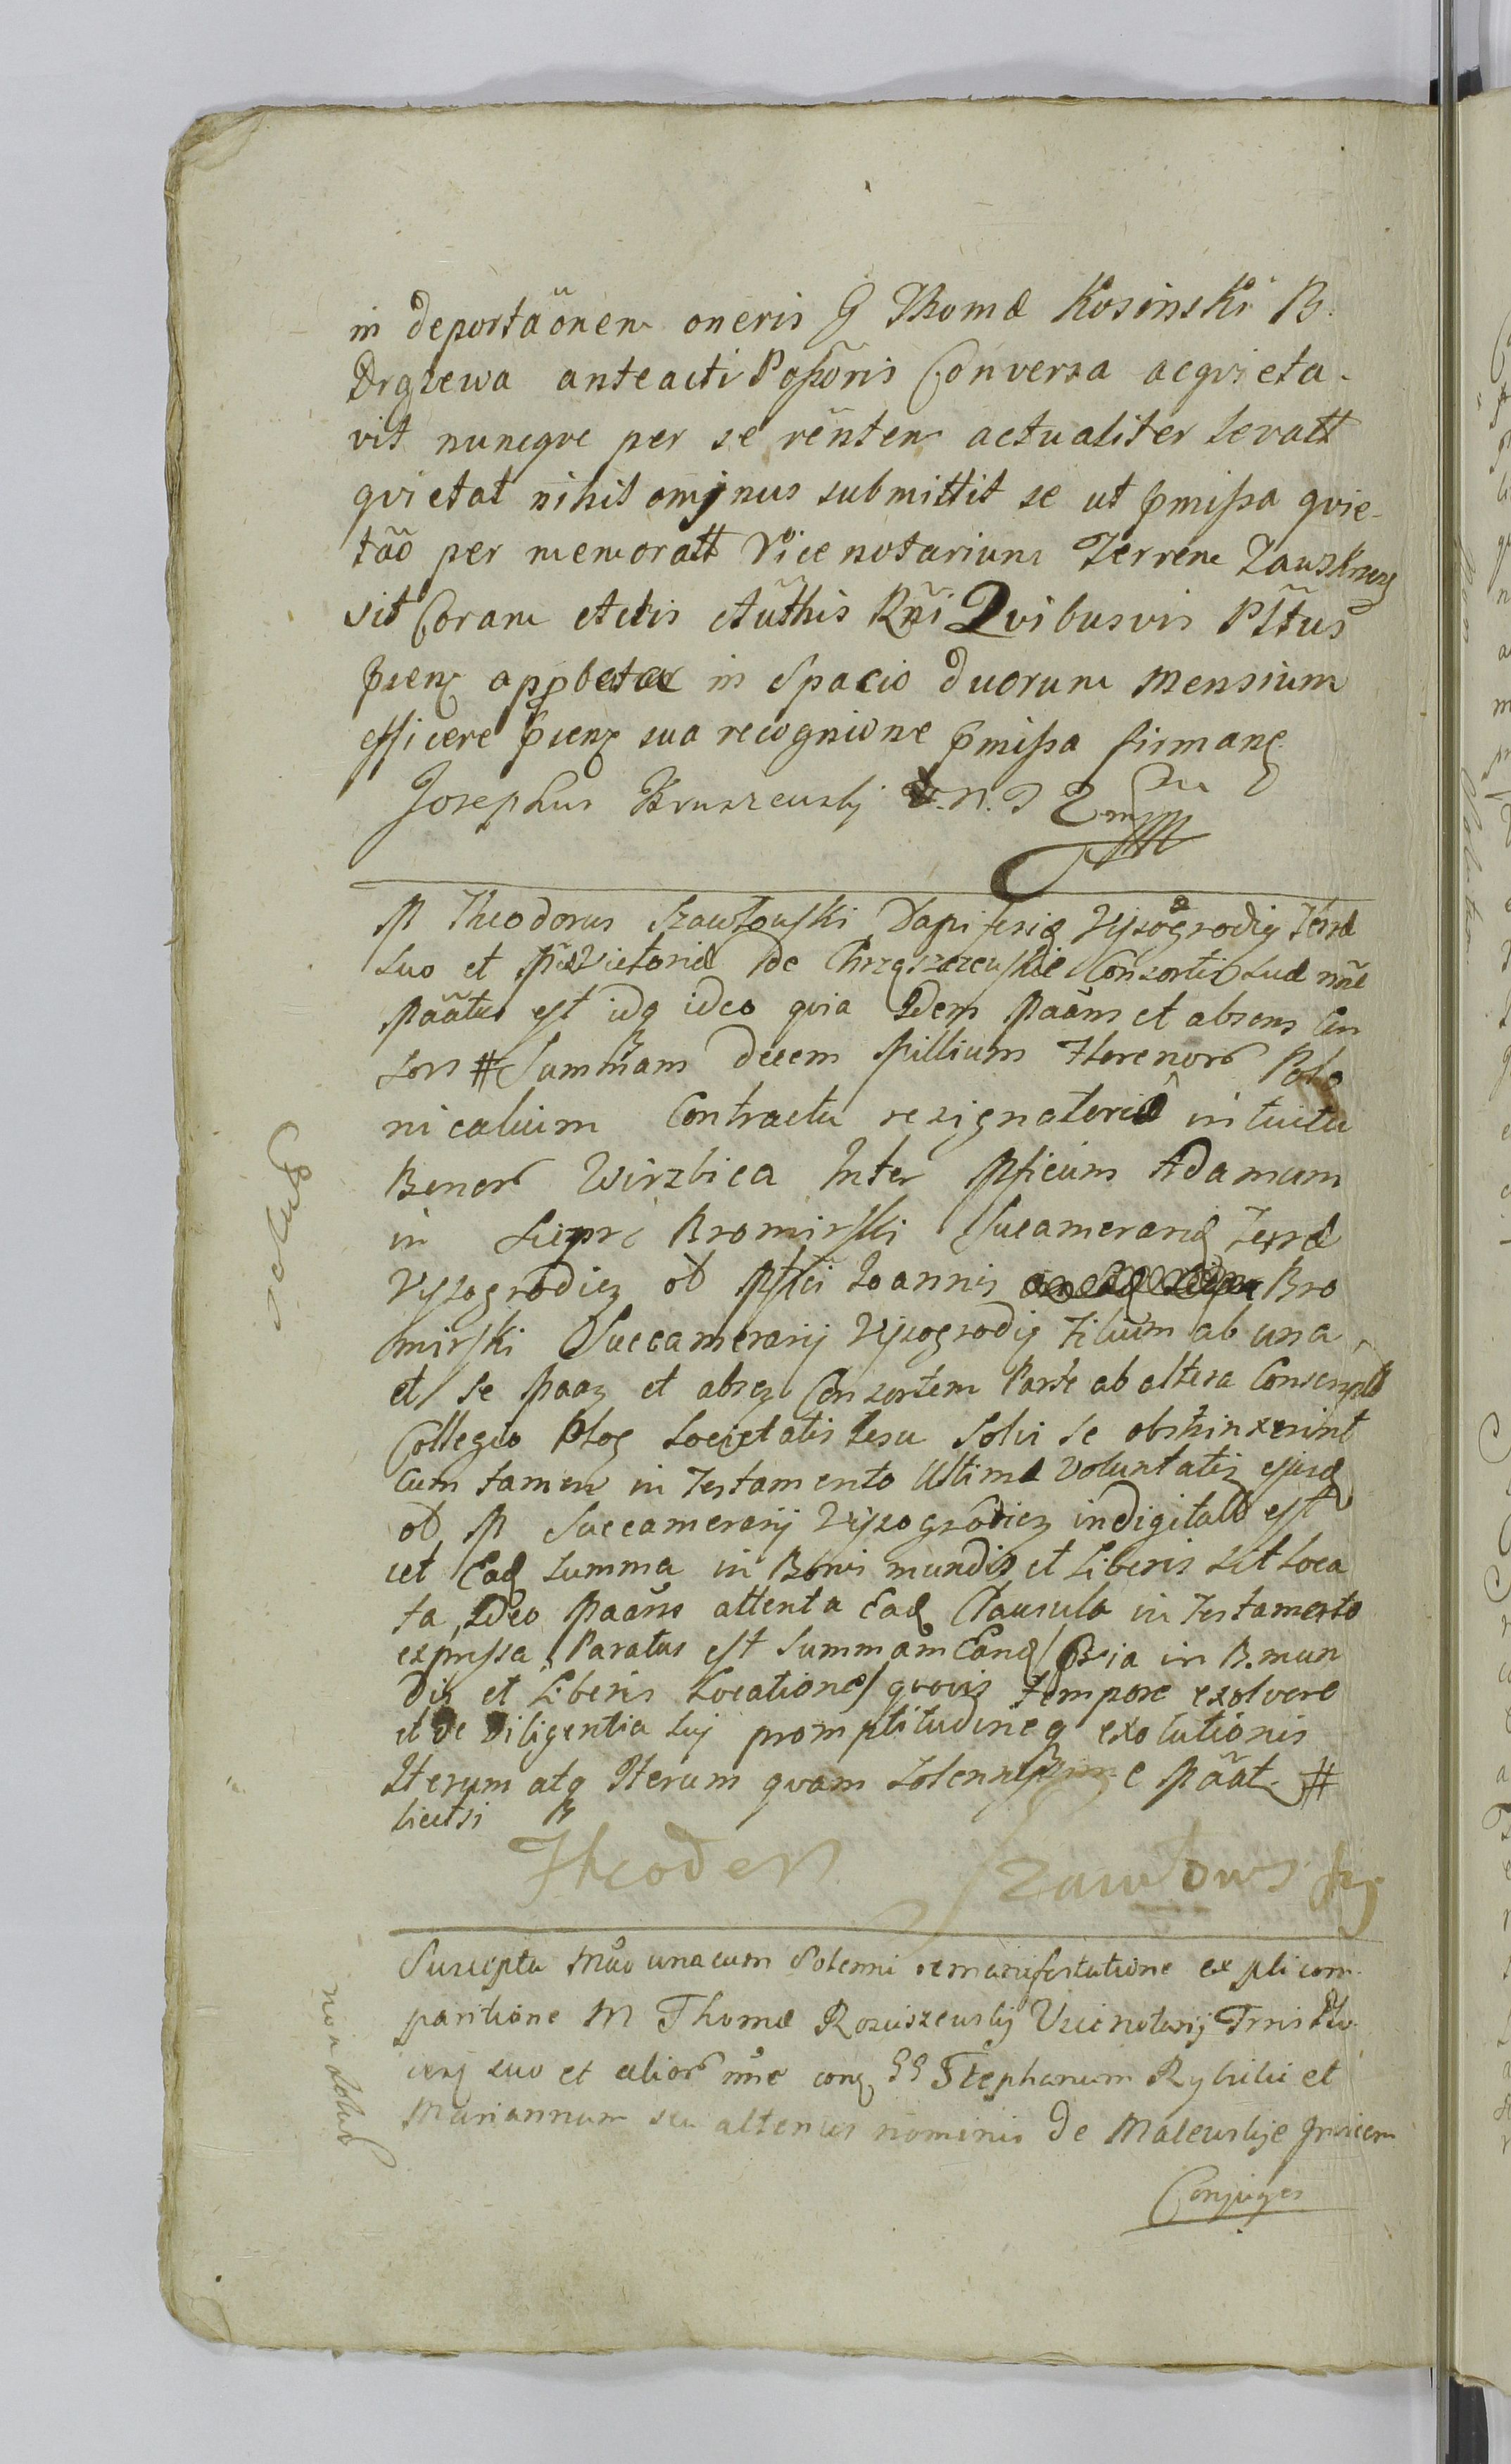 in deportãonem oneris G Thomæ Kosinski B.
Drgzewa anteacti Poßõris Conversa acqvieta-
vit nuncqve per se rẽntem actualiter levatt
qvietat nihil ominus submittit se ut p̃mißa qvie-
tão per memoratt Vice notarium Terrem Zawskrzen
sit Coram Actis Aũthis Rñi Qvibusvis Pltus
in Spacio duorum Mensium
efficere sua recognicione p̃mißa firmans
Josephus Kruszewskj V.N.
M Theodorus Szawłowski Dapiferid Vyssogrodien Terræ
suo et Victoriæ de Chrzaszczewskie Consortis suæ nñe
Pãatus est idq ideo qvia Idem Paãns et absens Con
sors # Summam decem Millium Florenorũ Polo
nicalium Contractu resignatorio intuitu
Bonorũ Wirzbica Inter Mficum Adamum
in Sieprc Bromirski Succamerarid Terræ
Vyssogrodien ol Mfici Ioannis Bro
mirski Succamerarij Vyssogrodien Filium ab una
et se Paan et absen Consortem Parte ab altera Conscripto
Collegio Ploc Societatis Iesu Solvi se obstrinxerint
cum tamen in Testamento Ultimæ Voluntatis ejusd
ol M Succamerarij Vyssogrodien indigitatũ est
ut Ead summa in Bonis mundis et Liberis sit Loca
ta, Ideo Paãns attenta Ead Clausula in Testamento
expressa Paratus est Summam Eand in B. mun
dis et Liberis Locatione qvovis tempore exolvere
et de diligentia sui promptitudineq exolutionis
Iterum atq Iterum qvam solennissime Pãat #
licet si
Theodor Szawłowskj
Suscepta Mão una cum Solenni remanifestatione ex pli com-
paritione M Thomæ Rosciszewskij Vicenotarij Trris Plo
cens suo et aliorũ nñe cong GG Stephanum Rybicki et
Mariannam seu alterius nominis de Malewskje Invicem
Conjuges
solut
non solut